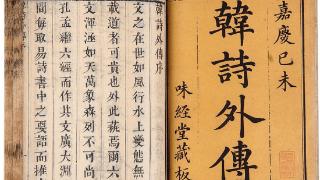 嘉慶己未
韓詩外傳
味經堂藏板
韓詩外傳序
文之在世如風行水上變態無
載道者可貴也外此蓺焉爾六
文渾涵如天萬象森列不可尚
孔孟繼六經而作其文廣大淵
間每取易詩書中之要語而推